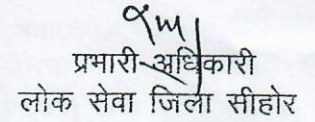 प्रभारी अधिकारी
लोक सेवा जिला सीहोर